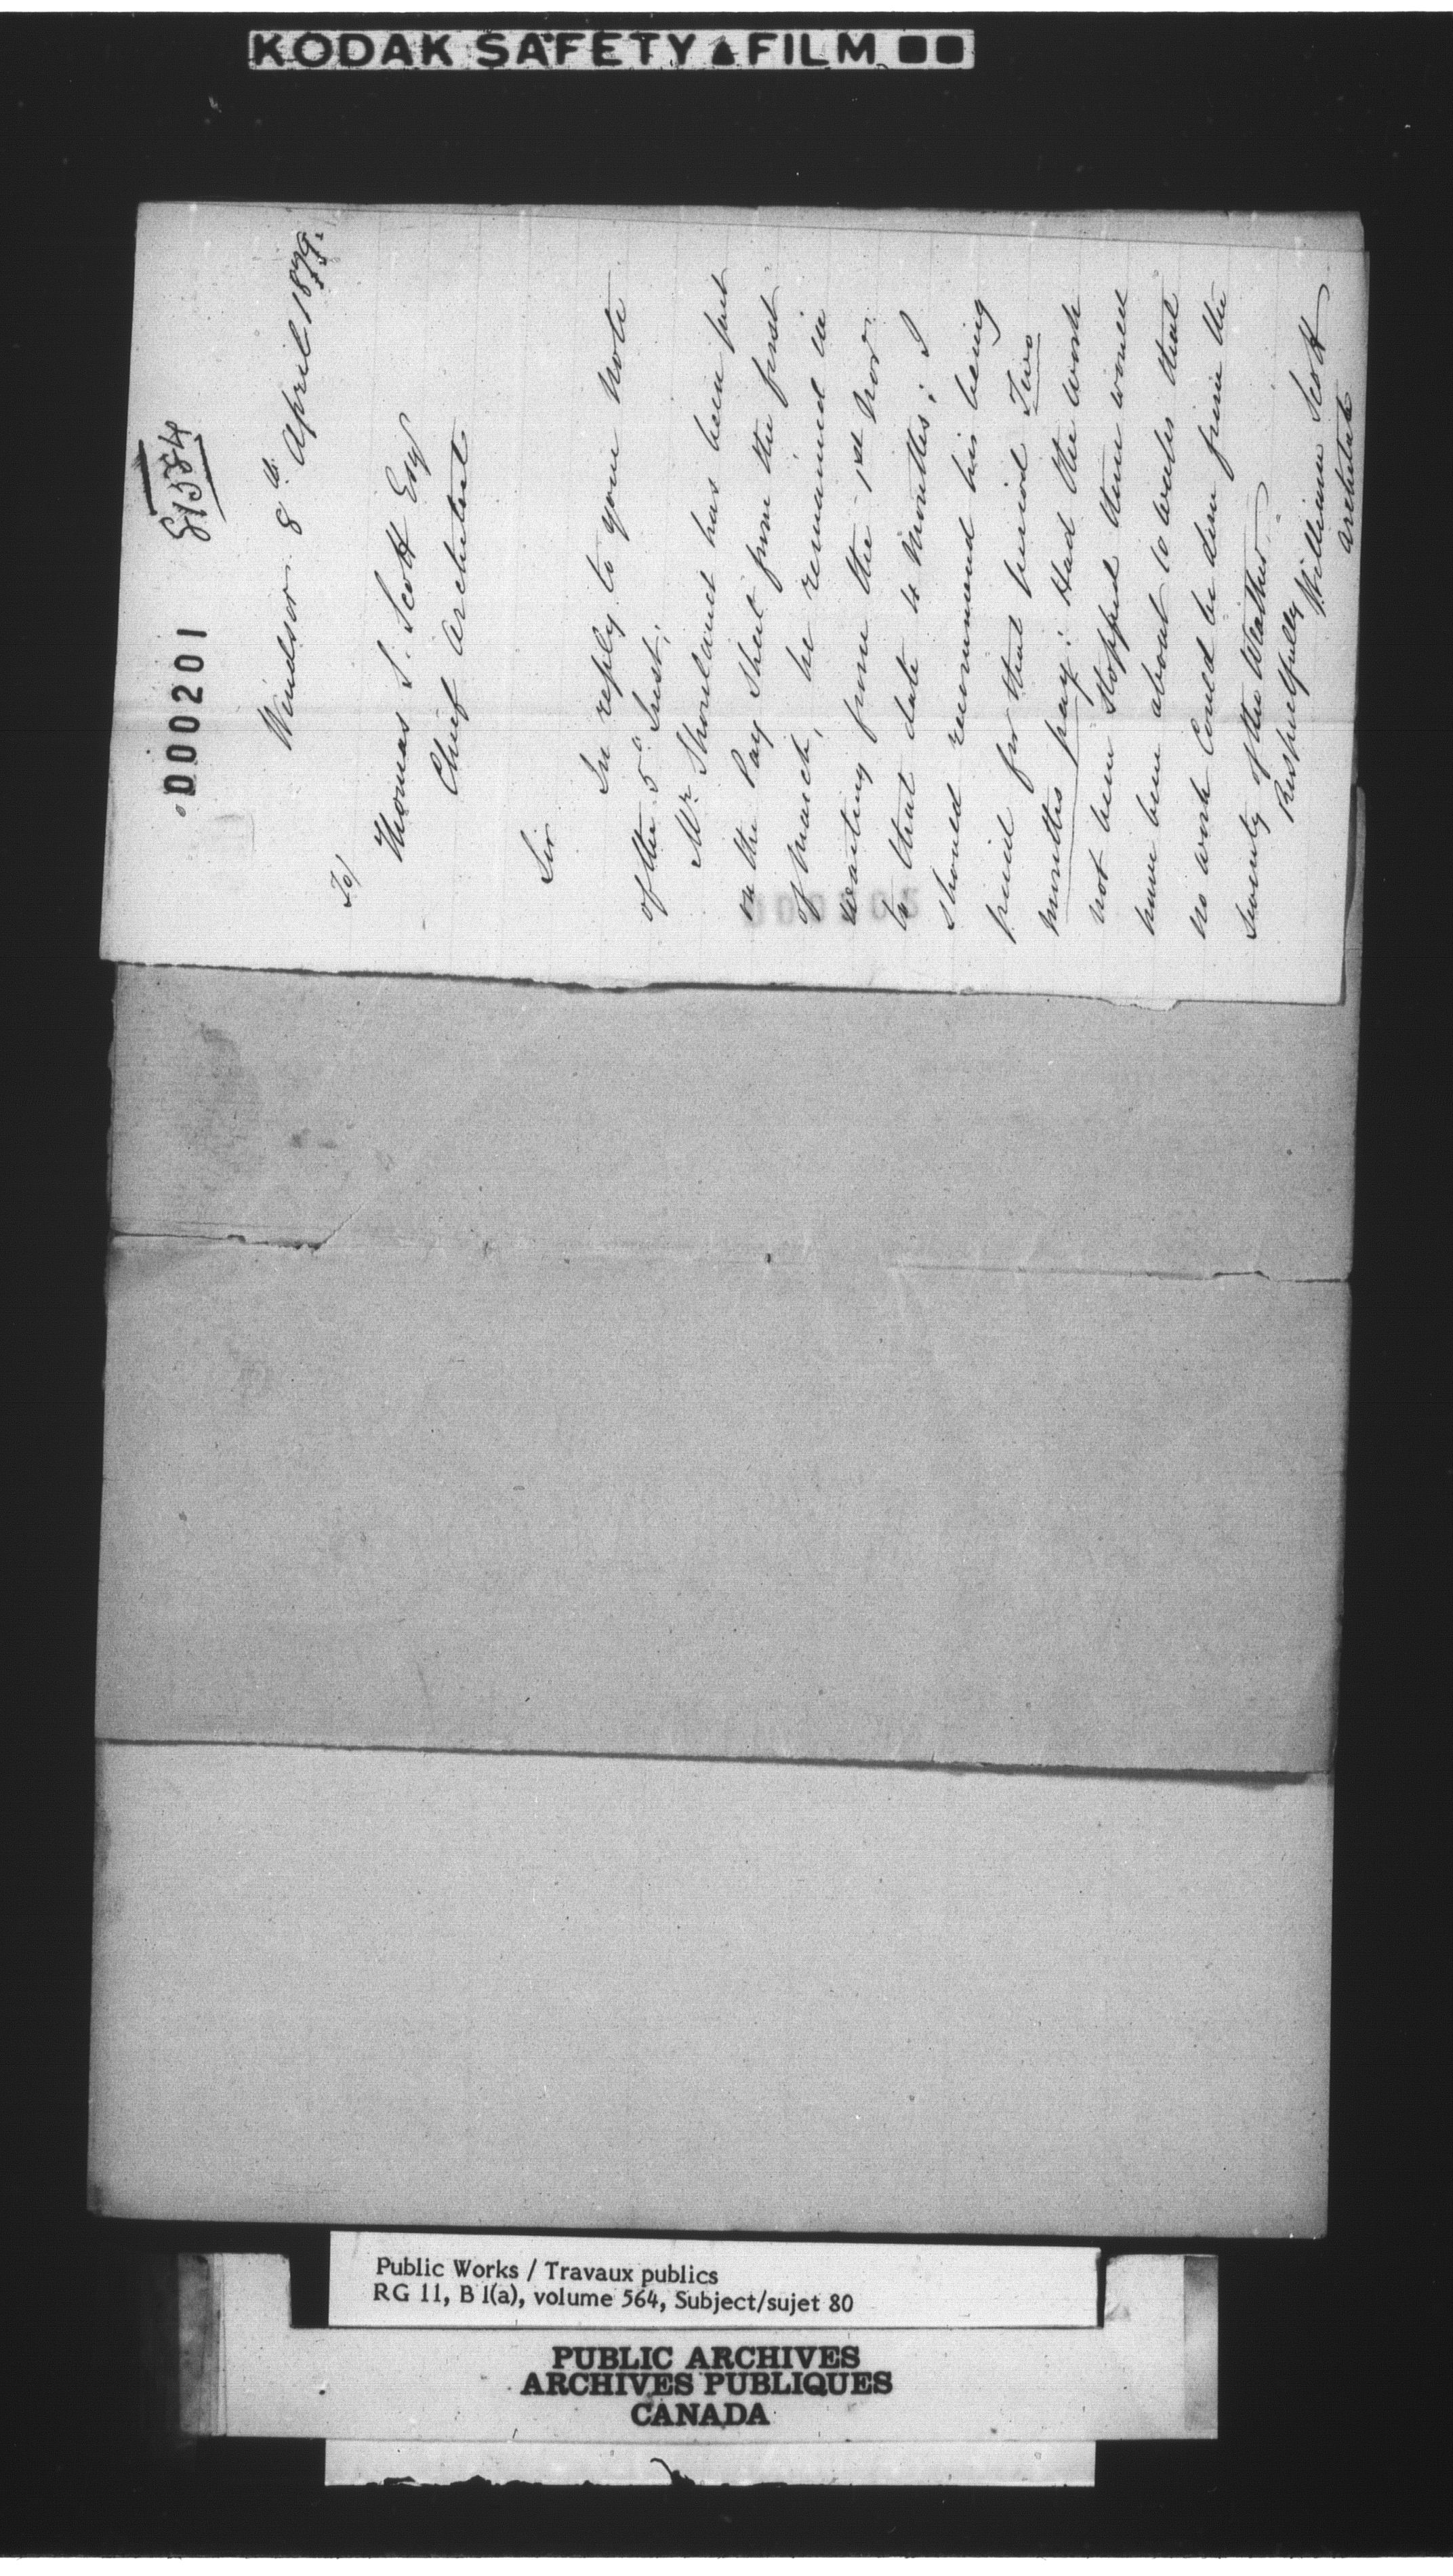 KODAK SAFETY FILM
000201
81584
Windsor 8th April 1879.
To/
Thomas S. Scott Esqr
Chief Architect
Sir
In reply to your note
of the 5th Inst;
Mr has been put
on the Pay Sheet from the first
of March, he remained in
waiting from the 1st Nov.
to that date 4 Months; I
should recommend his being
paid for that period Two
months pay: Had the work
not been stopped there would
have been about 10 weeks that
no work Could be done from the
severity of the Weather.
Respectfully
William Scott
Architect
Public Works / Travaux publics
RG 11, B 1(a), volume 564, Subject/sujet 80
PUBLIC ARCHIVES
ARCHIVES PUBLIQUES
CANADA